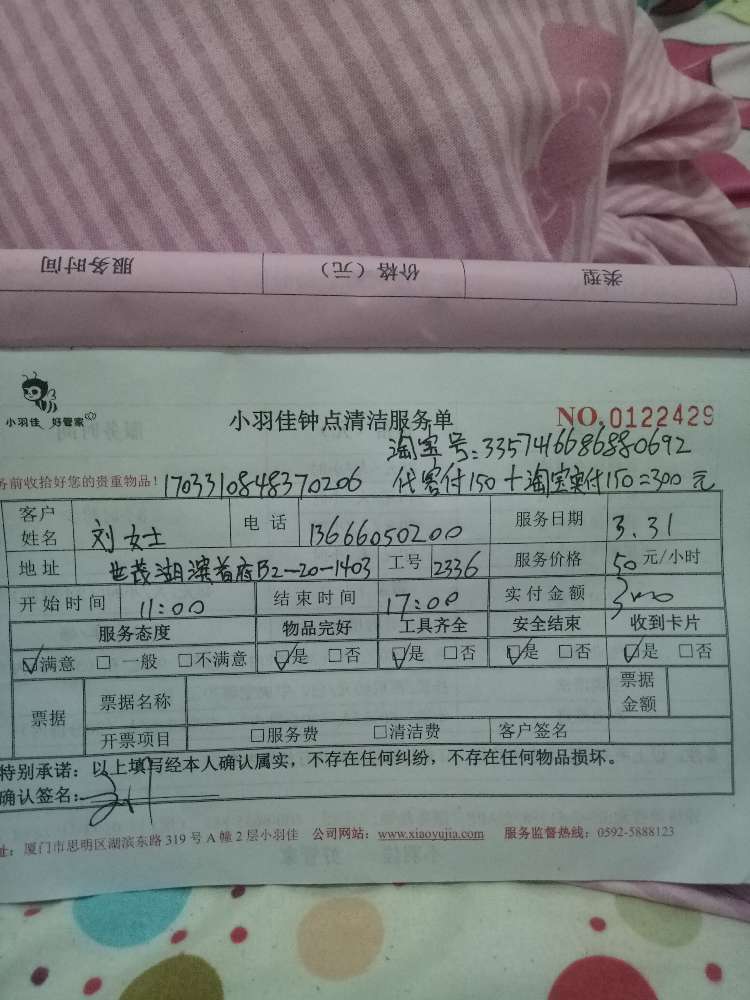 服务时间 价格（元） 类型
小羽佳 好管家
小羽佳钟点清洁服务单 NO.0122429
淘宝号:3357416686880692
务前收拾好您的贵重物品! 1703310848370206 代客付150+淘宝实付150=300元
客户姓名 刘女士 电话 13666050200 服务日期 3.31
地址 世茂湖滨首府B2-20-1403 工号 2336 服务价格 50元/小时
开始时间 11:00 结束时间 17:00 实付金额 300
服务态度 物品完好 工具齐全 安全结束 收到卡片
☑满意 □一般 □不满意 ☑是 □否 ☑是 □否 ☑是 □否 ☑是 □否
票据 票据名称 票据金额
开票项目 □服务费 □清洁费 客户签名
特别承诺：以上填写经本人确认属实，不存在任何纠纷，不存在任何物品损坏。
确认签名：
址：厦门市思明区湖滨东路319号A幢2层小羽佳 公司网站：www.xiaoyujia.com 服务监督热线：0592-5888123